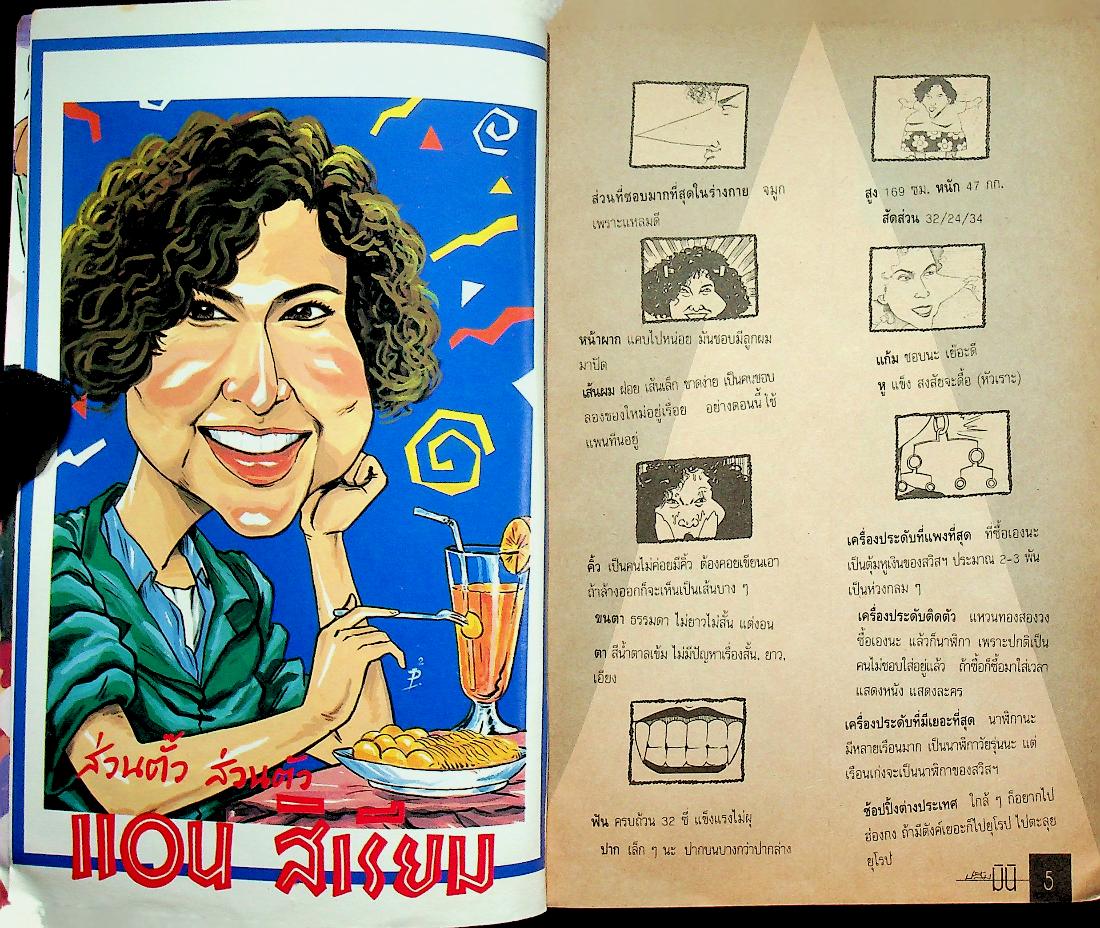 ส่วนตั๊ว ส่วนตัว
แอน สิเรียม
ส่วนที่ชอบมากที่สุดในร่างกาย จมูก
เพราะแหลมดี
หน้าผาก แคบไปหน่อย มันชอบมีลูกผม
มาปิด
เส้นผม ฝอย เส้นเล็ก ขาดง่าย เป็นคนชอบ
ลองของใหม่อยู่เรื่อย อย่างตอนนี้ใช้
แพนทีนอยู่
คิ้ว เป็นคนไม่ค่อยมีคิ้ว ต้องคอยเขียนเอา
ถ้าล้างออกก็จะเห็นเป็นเส้นบาง ๆ
ขนตา ธรรมดา ไม่ยาวไม่สั้น แต่งอน
ตา สีน้ำตาลเข้ม ไม่มีปัญหาเรื่องสั้น, ยาว,
เอียง
ฟัน ครบถ้วน 32 ซี่ แข็งแรงไม่ผุ
ปาก เล็ก ๆ นะ ปากบนบางกว่าปากล่าง
สูง 169 ซม. หนัก 47 กก.
สัดส่วน 32/24/34
แก้ม ชอบนะ เยอะดี
หู แข็ง สงสัยจะดื้อ (หัวเราะ)
เครื่องประดับที่แพงที่สุด ที่ซื้อเองนะ
เป็นตุ้มหูเงินของสวิสฯ ประมาณ 2-3 พัน
เป็นห่วงกลม ๆ
เครื่องประดับติดตัว แหวนทองสองวง
ซื้อเองนะ แล้วก็นาฬิกา เพราะปกติเป็น
คนไม่ชอบใส่อยู่แล้ว ถ้าซื้อก็ซื้อมาใส่เวลา
แสดงหนัง แสดงละคร
เครื่องประดับที่มีเยอะที่สุด นาฬิกานะ
มีหลายเรือนมาก เป็นนาฬิกาวัยรุ่นนะ แต่
เรือนเก่งจะเป็นนาฬิกาของสวิสฯ
ช้อปปิ้งต่างประเทศ ใกล้ ๆ ก็อยากไป
ฮ่องกง ถ้ามีตังค์เยอะก็ไปยุโรป ไปตะลุย
ยุโรป
มินิ 5